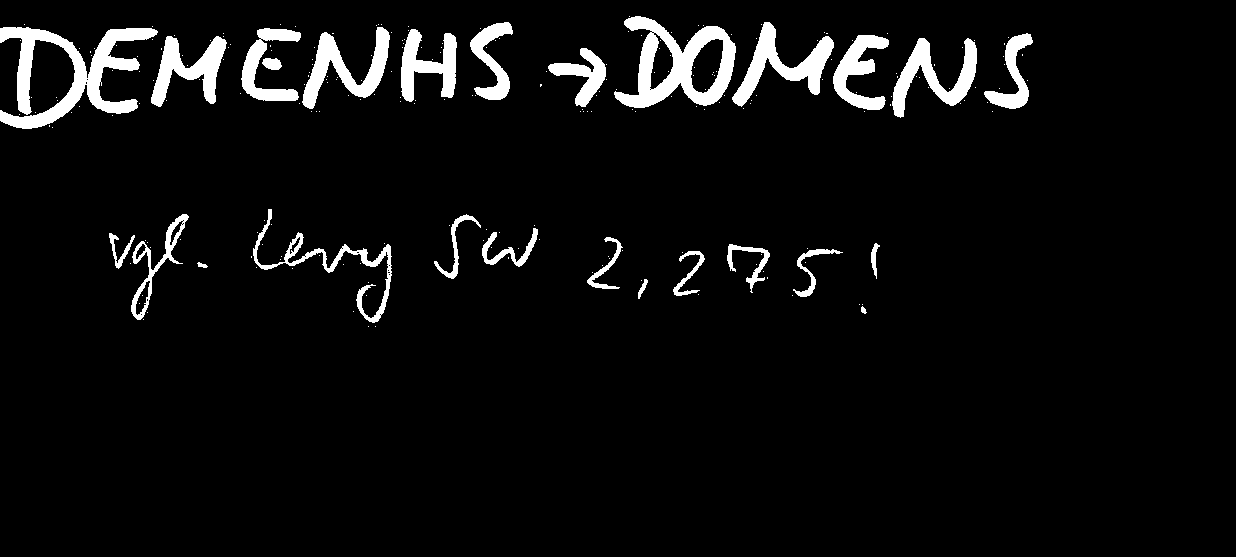 DEMENHS → DOMENS
vgl. Levy SW 2, 275!